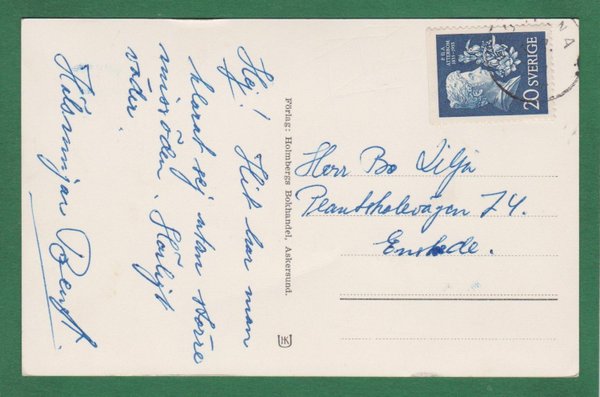 Hej! Hit har man
klarat sej utan större
missöden. Härligt
väder.
Hälsningar Bengt.
Förlag: Holmbergs Bokhandel, Askersund.
HK
P.D.A.
ATTERBOM
1855-1955
20 SVERIGE
NA
Herr Bo Lilja
Plantskolevägen 74.
Enskede.